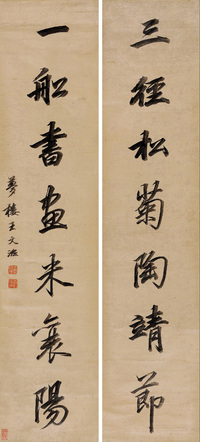 三徑松菊陶靖節
一船書畫米襄陽
夢樓王文治